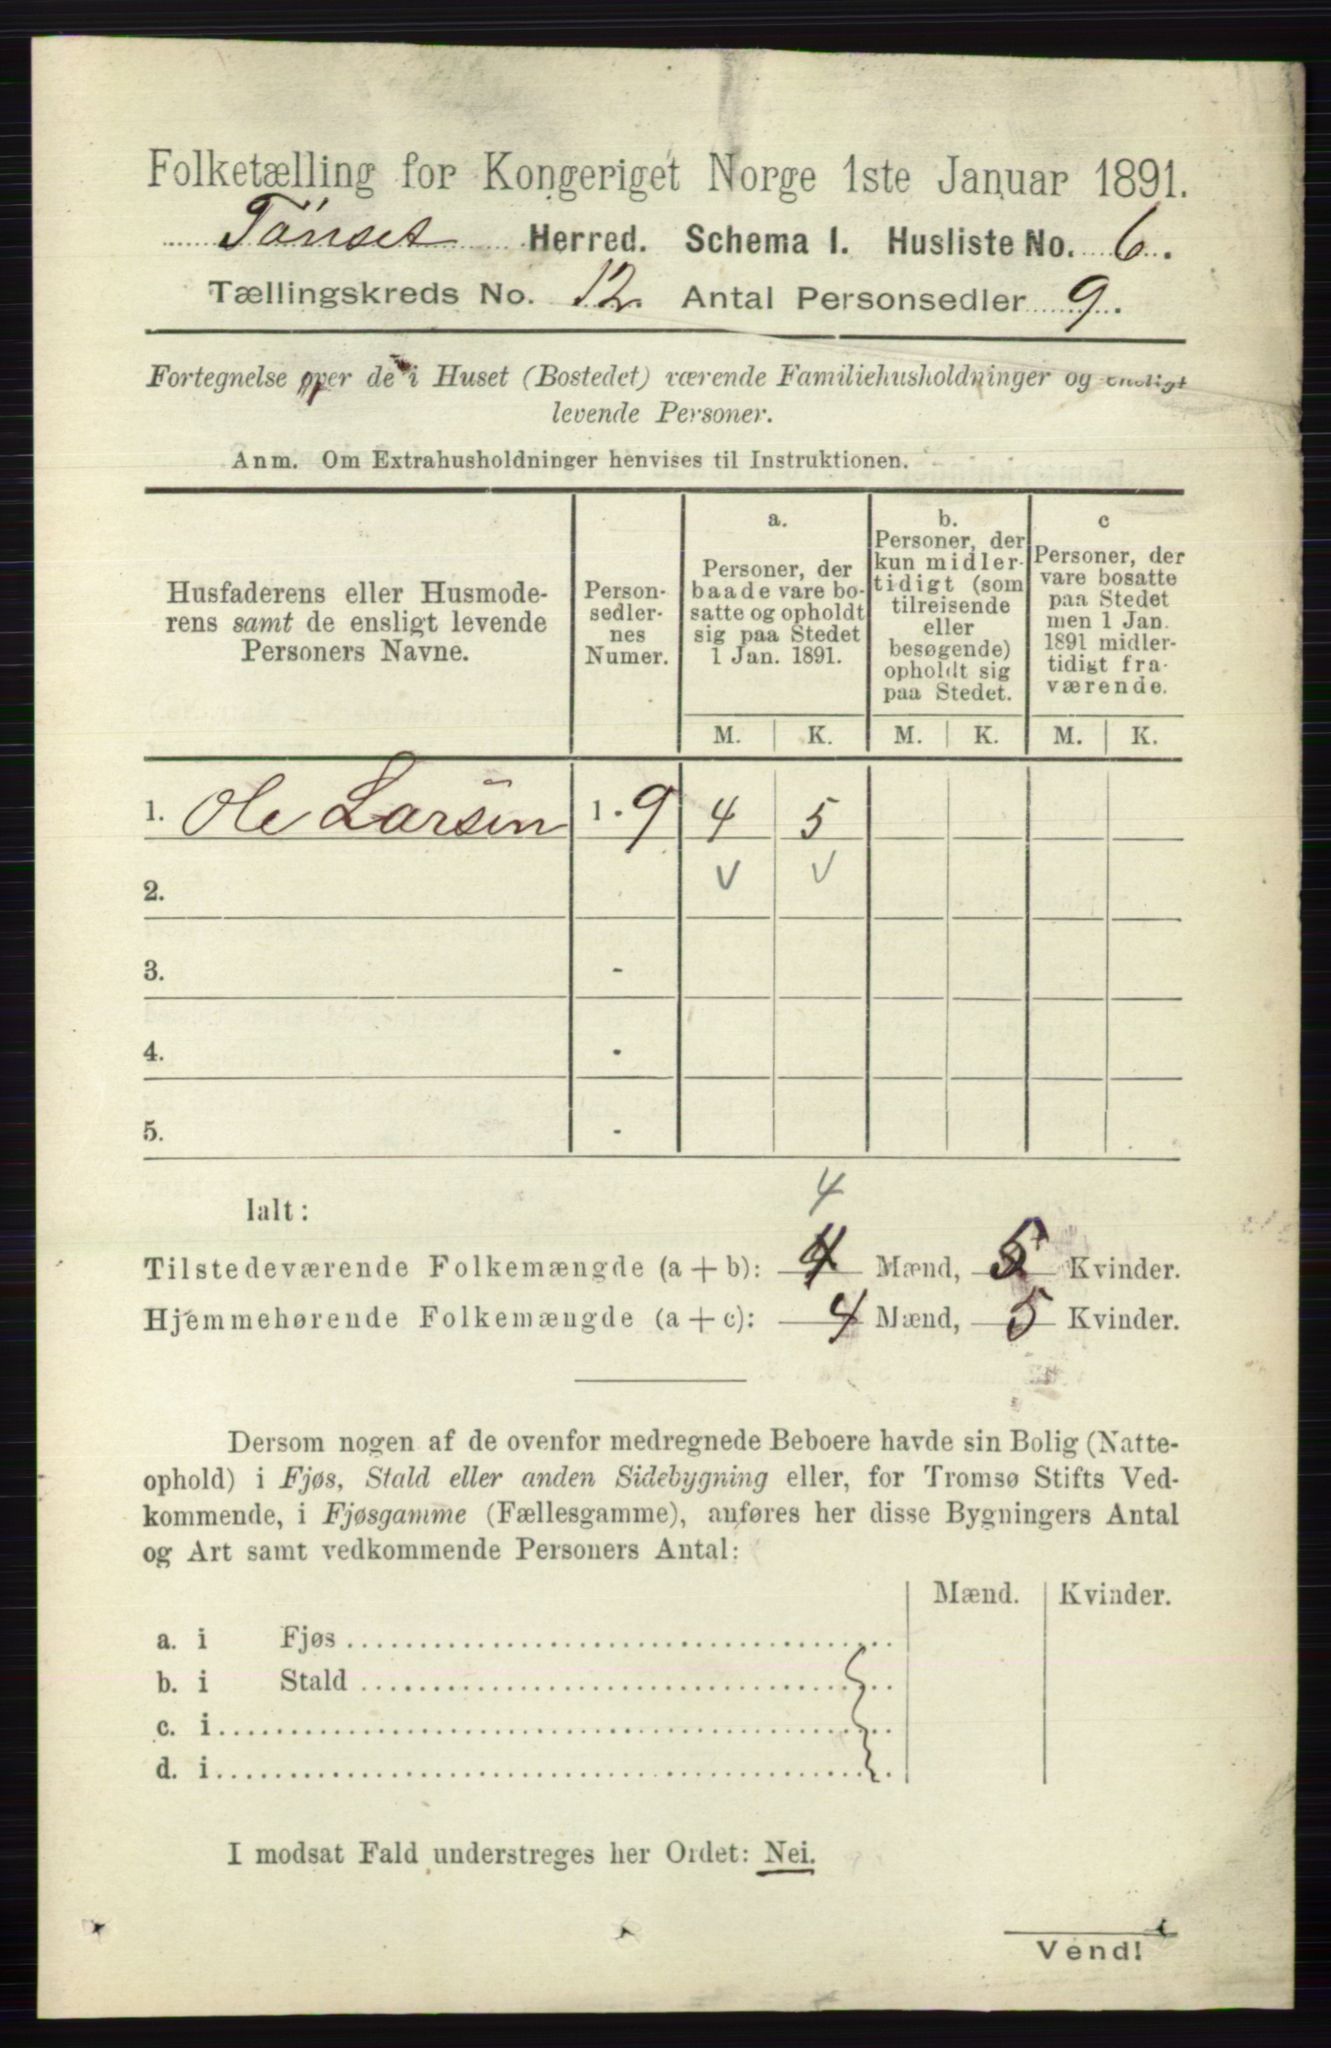 Folketælling for Kongeriget Norge 1ste Januar 1891.
Tönset Herred. Schema 1. Husliste No. 6.
Tællingskreds No. 12. Antal Personsedler 9.
Fortegnelse over de i Huset (Bostedet) værende Familiehusholdninger og ensligt
levende Personer.
Anm. Om Extrahusholdninger henvises til Instruktionen.
Husfaderens eller Husmode-
rens samt de ensligt levende
Personers Navne.
Person-
sedler-
nes
Numer.
a.
Personer, der
baade vare bo-
satte og opholdt
sig paa Stedet
1 Jan. 1891.
b.
Personer, der
kun midler-
tidigt (som
tilreisende
eller
besøgende)
opholdt sig
paa Stedet.
c
Personer, der
vare bosatte
paa Stedet
men 1 Jan.
1891 midler-
tidigt fra-
værende.
M. K. M. K. M. K.
1. Ole Larsen 1 - 9 4 5
2. V V
3. -
4. -
5. -
4
Ialt:
Tilstedeværende Folkemængde (a + b): 4 Mænd, 5 Kvinder.
Hjemmehørende Folkemængde (a + c): 4 Mænd, 5 Kvinder.
Dersom nogen af de ovenfor medregnede Beboere havde sin Bolig (Natte-
ophold) i Fjøs, Stald eller anden Sidebygning eller, for Tromsø Stifts Ved-
kommende, i Fjøsgamme (Fællesgamme), anføres her disse Bygningers Antal
og Art samt vedkommende Personers Antal:
Mænd. Kvinder.
a. i Fjøs
b. i Stald
c. i
d. i
I modsat Fald understreges her Ordet: Nei.
Vend!